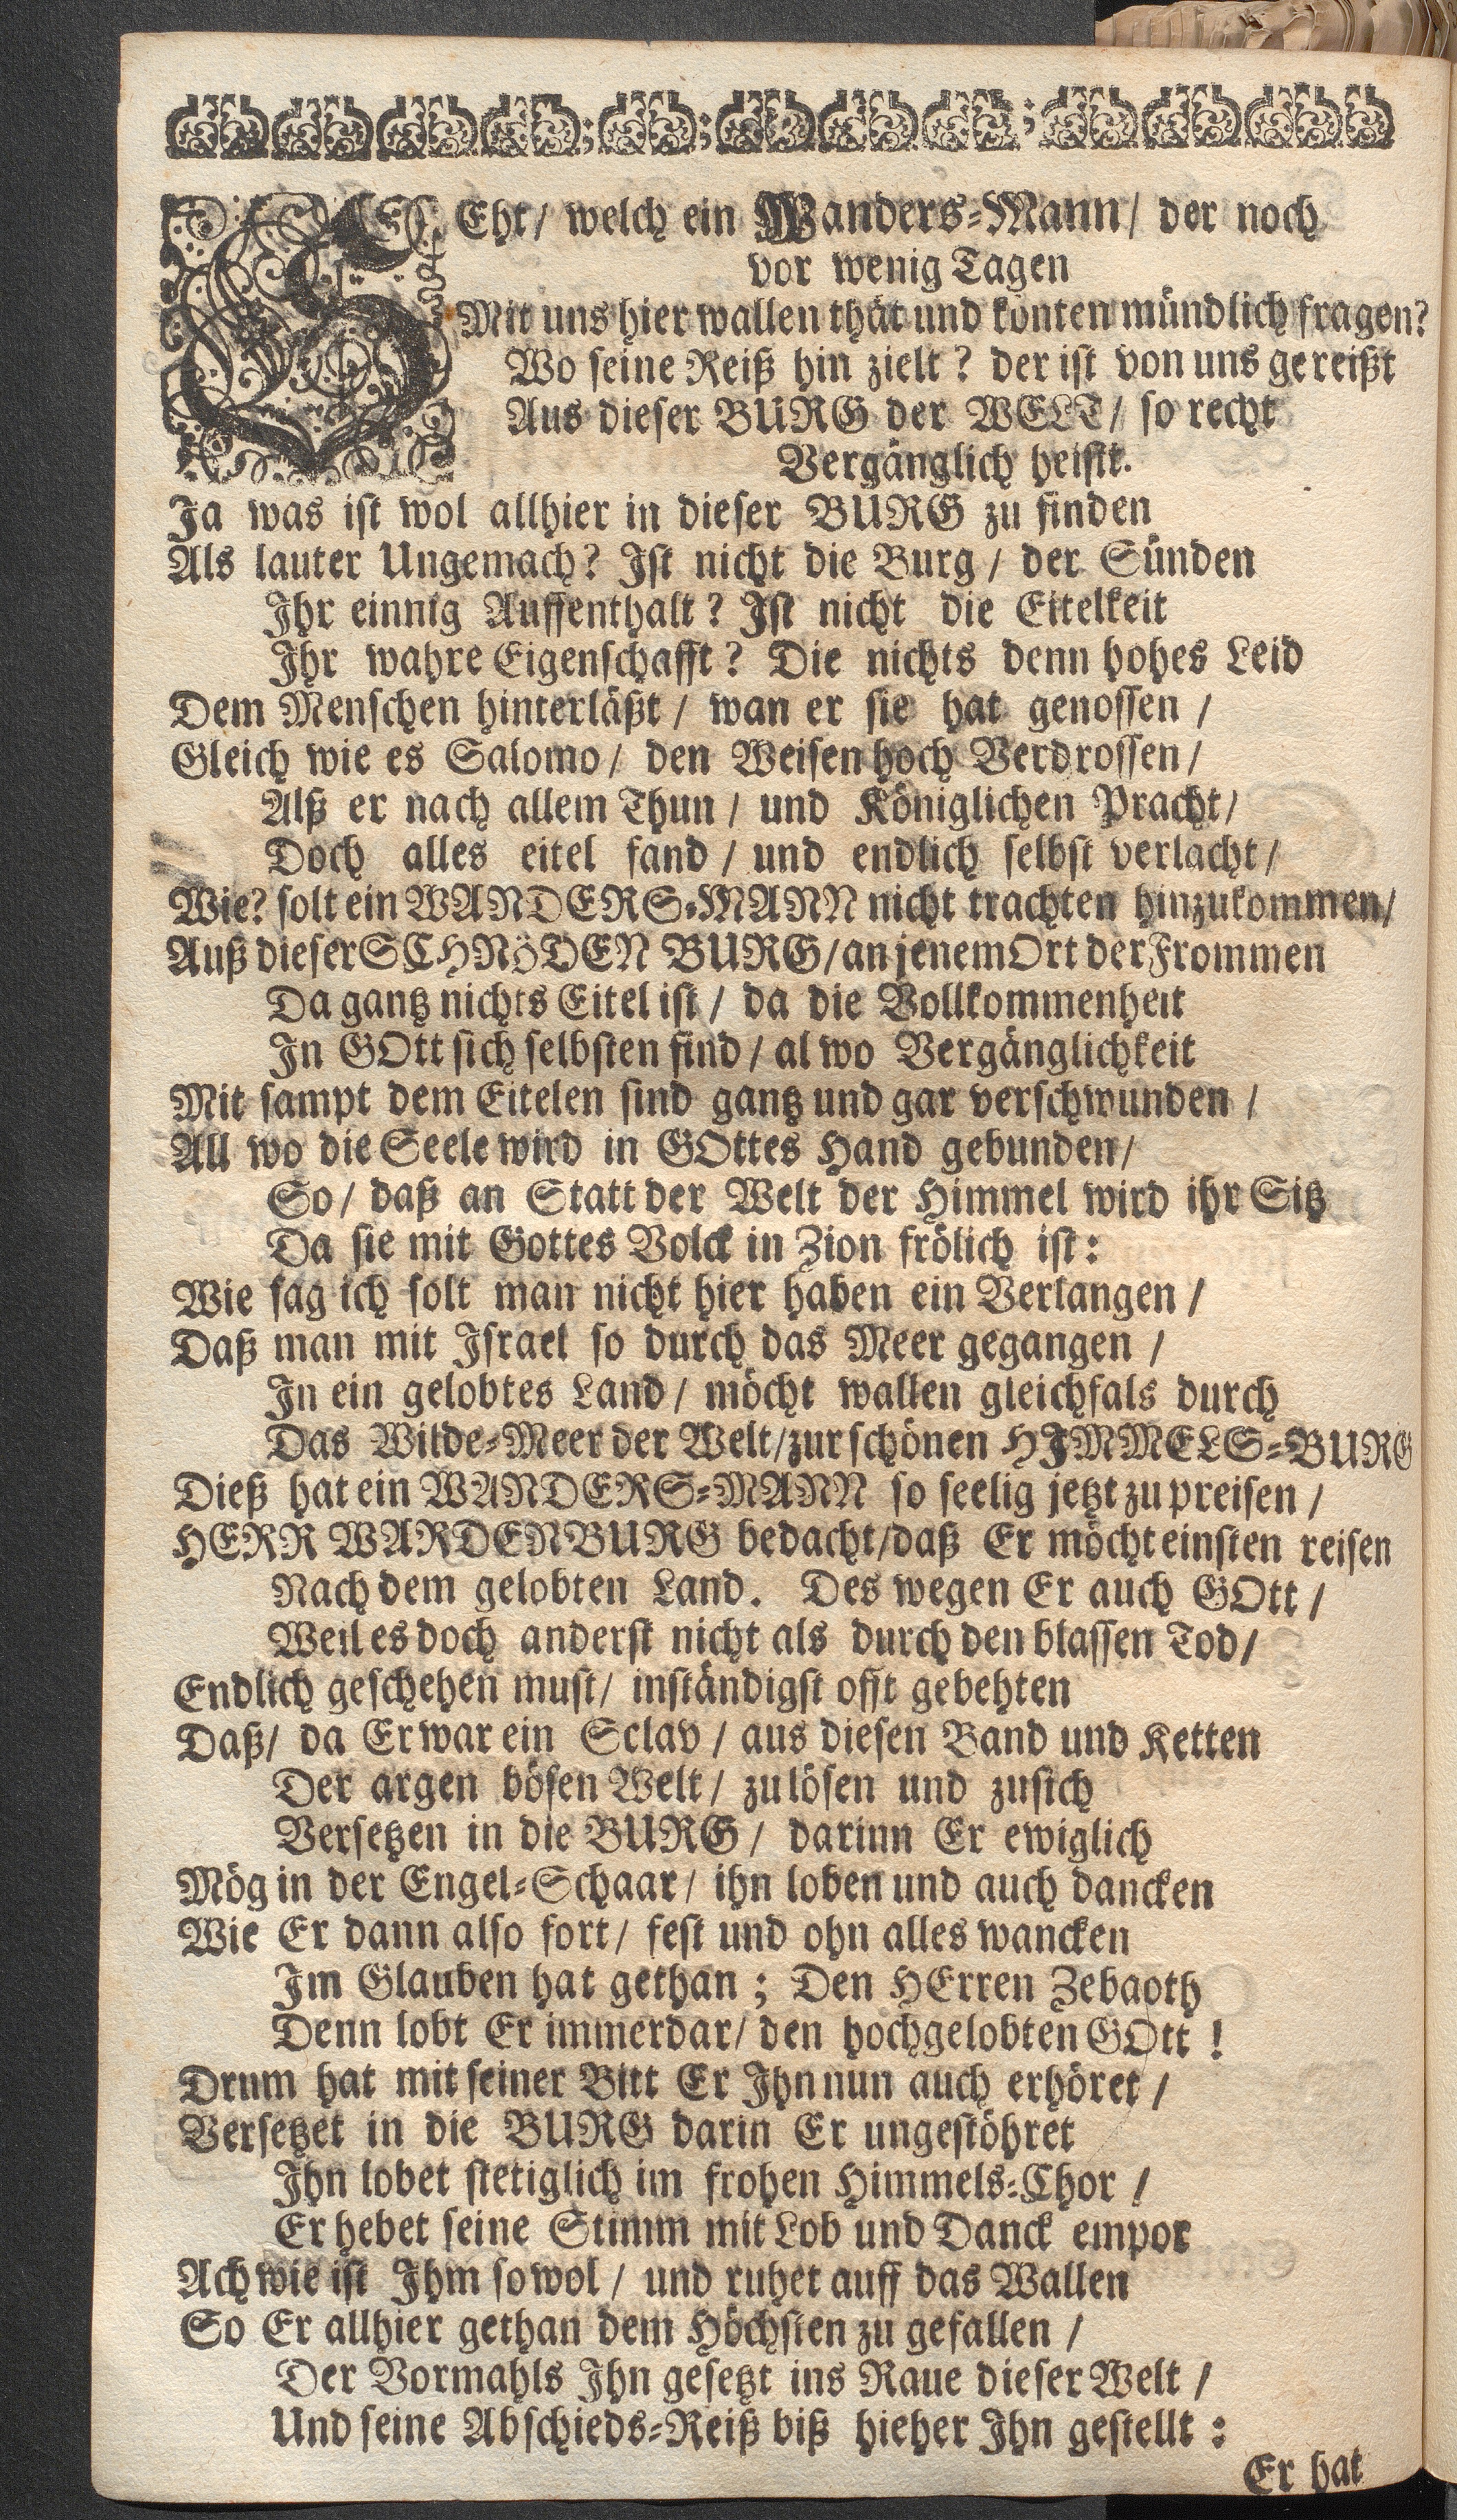 SEht/ welch ein Wanders-Mann/ der noch
vor wenig Tagen
Mit uns hier wallen thät und konten mündlich fragen?
Wo seine Reiß hin zielt? der ist von uns gereißt
Aus dieser BURG der WELT/ so recht
Vergänglich heisst.
Ja was ist wol allhier in dieser BURG zu finden
Als lauter Ungemach? Ist nicht die Burg/ der Sünden
Ihr einnig Auffenthalt? Ist nicht die Eitelkeit
Ihr wahre Eigenschafft? Die nichts denn hohes Leid
Dem Menschen hinterläßt/ wan er sie hat genossen/
Gleich wie es Salomo/ den Weisen hoch Verdrossen/
Alß er nach allem Thun/ und Königlichen Pracht/
Doch alles eitel fand/ und endlich selbst verlacht/
Wie? solt ein WANDERS-MANN nicht trachten hinzukommen/
Auß dieser SCHNÖDEN BURG/ an jenem Ort der Frommen
Da gantz nichts Eitel ist/ da die Vollkommenheit
In GOtt sich selbsten find/ al wo Vergänglichkeit
Mit sampt dem Eitelen sind gantz und gar verschwunden/
All wo die Seele wird in GOttes Hand gebunden/
So/ daß an Statt der Welt der Himmel wird ihr Sitz
Da sie mit Gottes Volck in Zion frölich ist:
Wie sag ich solt man nicht hier haben ein Verlangen/
Daß man mit Israel so durch das Meer gegangen/
In ein gelobtes Land/ möcht wallen gleichfals durch
Das Wilde-Meer der Welt/ zur schönen HIMMELS-BURG
Dieß hat ein WANDERS-MANN so seelig jetzt zu preisen/
HERR WARDENBURG bedacht/ daß Er möcht einsten reisen
Nach dem gelobten Land. Des wegen Er auch GOtt/
Weil es doch anderst nicht als durch den blassen Tod/
Endlich geschehen must/ inständigst offt gebehten
Daß/ da Er war ein Sclav/ aus diesen Band und Ketten
Der argen bösen Welt/ zu lösen und zusich
Versetzen in die BURG/ darinn Er ewiglich
Mög in der Engel-Schaar/ ihn loben und auch dancken
Wie Er dann also fort/ fest und ohn alles wancken
Im Glauben hat gethan; Den HErren Zebaoth
Denn lobt Er immerdar/ den hochgelobten GOtt!
Drum hat mit seiner Bitt Er Ihn nun auch erhöret/
Versetzet in die BURG darin Er ungestöhret
Ihn lobet stetiglich im frohen Himmels-Chor/
Er hebet seine Stimm mit Lob und Danck empor
Ach wie ist Ihm so wol/ und ruhet auff das Wallen
So Er allhier gethan dem Höchsten zu gefallen/
Der Vormahls Ihn gesetzt ins Raue dieser Welt/
Und seine Abschieds-Reiß biß hieher Ihn gestellt:
Er hat